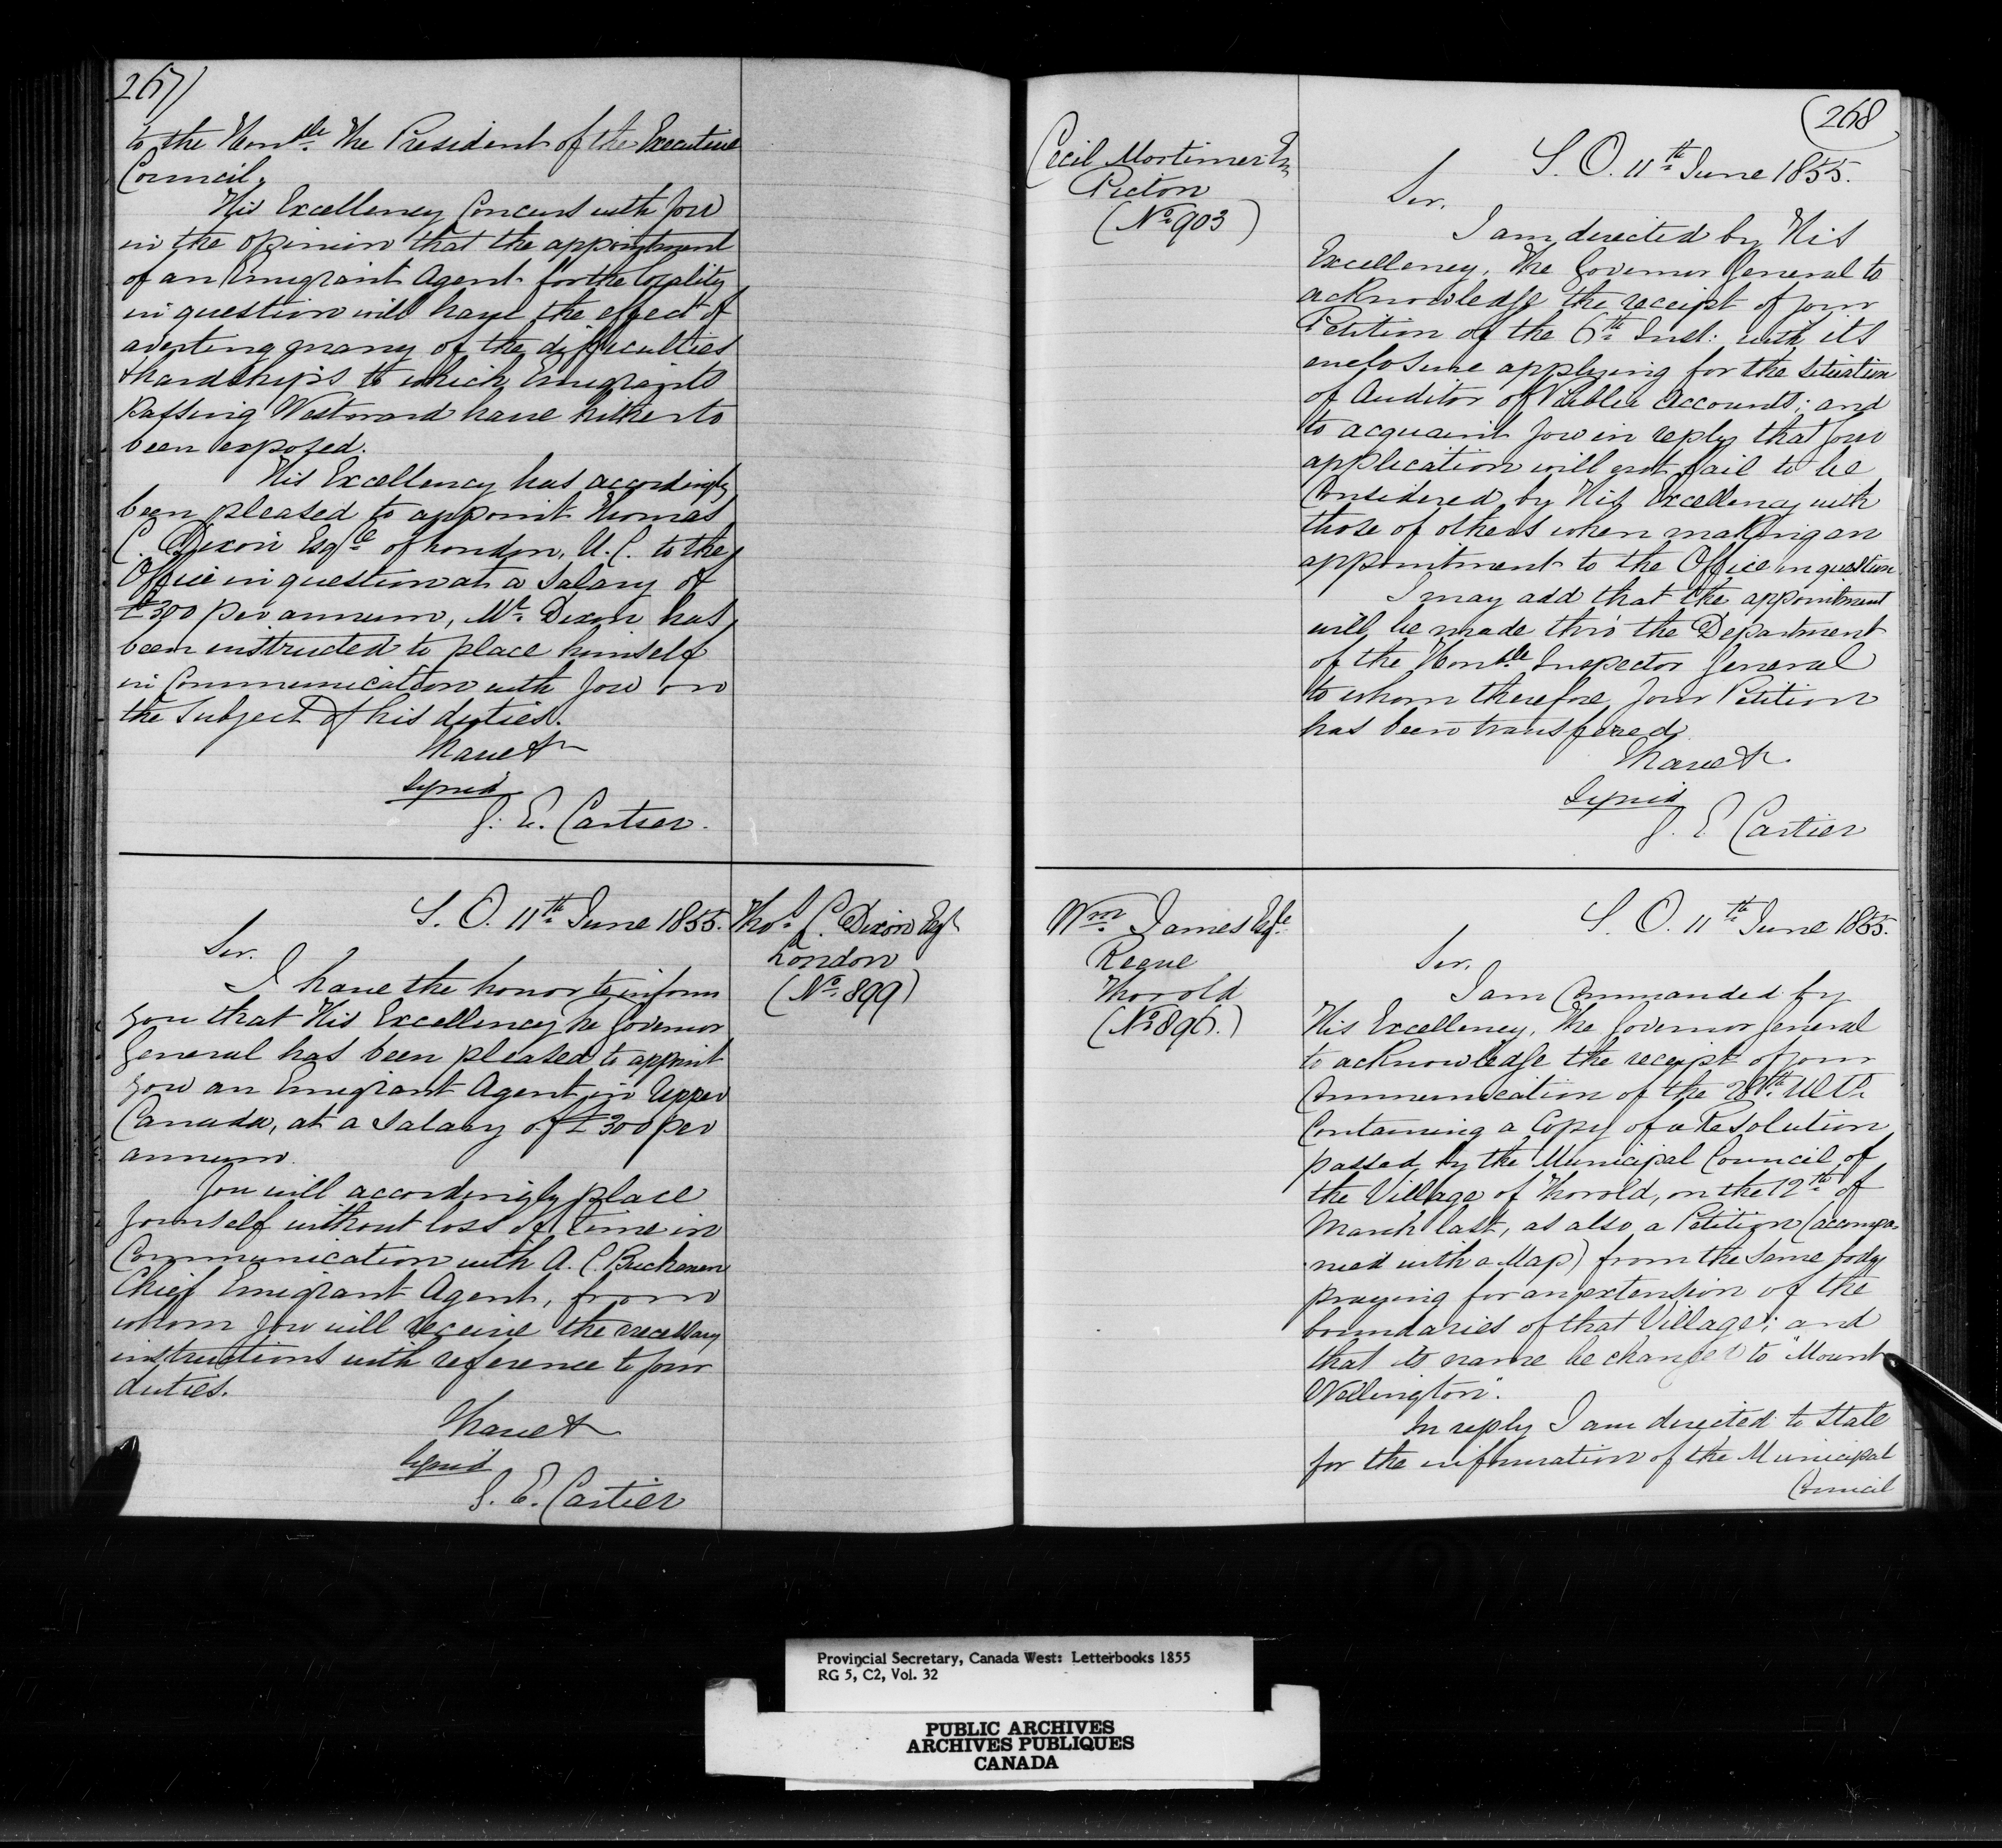 267)
to the Honble. The President of the Executive
Council.
His Excellency Concurs with you
in the opinion that the appointment
of an Emigrant Agent for the locality
in question will have the effect of
averting many of the difficulties
& hardships to which Emigrants
passing Westward have hitherto
been exposed.
His Excellency has accordingly
been pleased to appoint Thomas
C. Dixon Esqre of London, U.C. to the
Office in question at a Salary of
£300 per annum, Mr. Dixon has
been instructed to place himself
in Communication with you on
the Subject of his duties.
I have &c
Signed
G. E. Cartier.
S. O. 11th June 1855.
Thos. C. Dixon Esqr
London
(No. 899)
Sir.
I have the honor to inform
you that His Excellency he Governor
General has been pleased to appoint
you an Emigrant Agent in Upper
Canada, at a Salary of £300 per
annum.
You will accordingly place
yourself without loss of time in
Communication with A. C. Buchanan
Chief Emigrant Agent, from
whom you will receive the necessary
instructions with reference to your
duties.
I have &
Signed
G. E. Cartier
(268
Cecil Mortimer Esq
Picton
(No. 903)
S. O. 11th June 1855.
Sir.
I am directed by His
Excellency, The Governor General to
acknowledge the receipt of your
Petition of the 6th Inst: with its
enclosure applying for the situation
of Auditor of Public Accounts; and
to acquaint you in reply that your
application will not fail to be
Considered by His Excellency with
those of others when making an
appointment to the Office in question.
I may add that the appointment
will be made thro' the Department
of the Honble Inspector General
to whom therefore your Petition
has been transfered.
I have &c.
Signed
G. E Cartier
Wm. James Esqre.
Reeve
Thorold
(No 896.)
S. O. 11th June 1855.
Sir.
I am Commanded by
His Excellency, The Governor General
to acknowledge the receipt of your
Communication of the 28th. Ulto.
Containing a Copy of a Resolution
passed by the Municipal Council of
the Village of Thorold, on the 12th of
March last, as also a Petition (accompa-
nied with a Map) from the same body
praying for an extension of the
boundaries of that Village; and
that its name be changed to "Mount
Wellington".
In reply I am directed to state
for the information of the Municipal
Council
Provincial Secretary, Canada West: Letterbooks 1855
RG 5, C2, Vol. 32
PUBLIC ARCHIVES
ARCHIVES PUBLIQUES
CANADA